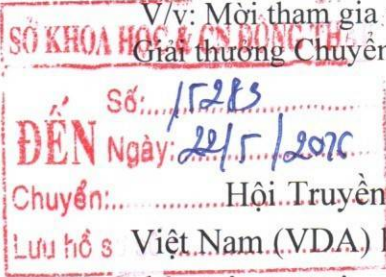 V/v: Mời tham gia
SỞ KHOA HỌC & CN ĐỒNG THÁ
Giải thưởng Chuyển
Số: 15283
ĐẾN Ngày: 22/5/2026
Chuyển:
Hội Truyền
Lưu hồ s
Việt Nam (VDA)